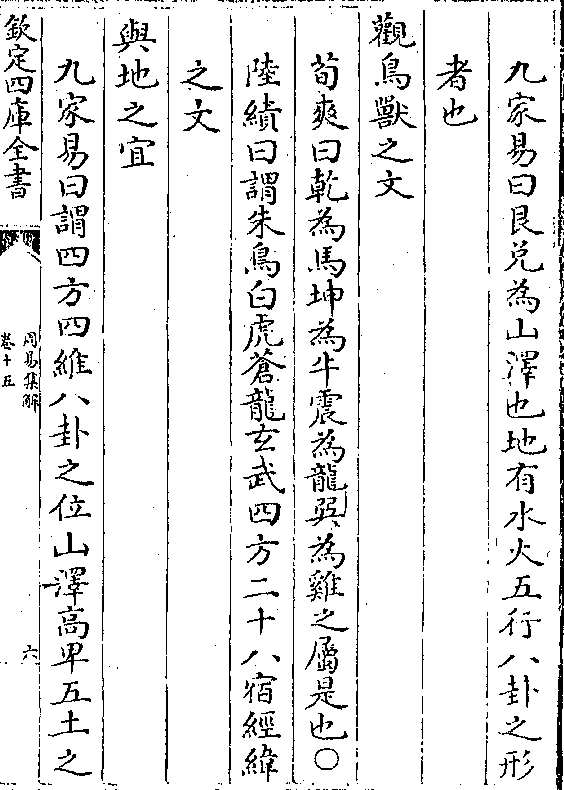 九家易曰艮兌為山澤也地有水火五行八卦之形
者也
觀鳥獸之文
荀爽曰乾為馬坤為牛震為龍巽為雞之屬是也○
陸績曰謂朱鳥白虎蒼龍玄武四方二十八宿經緯
之文
與地之宜
九家易曰謂四方四維八卦之位山澤高卑五土之
欽定四庫全書
周易集解
卷十五
六